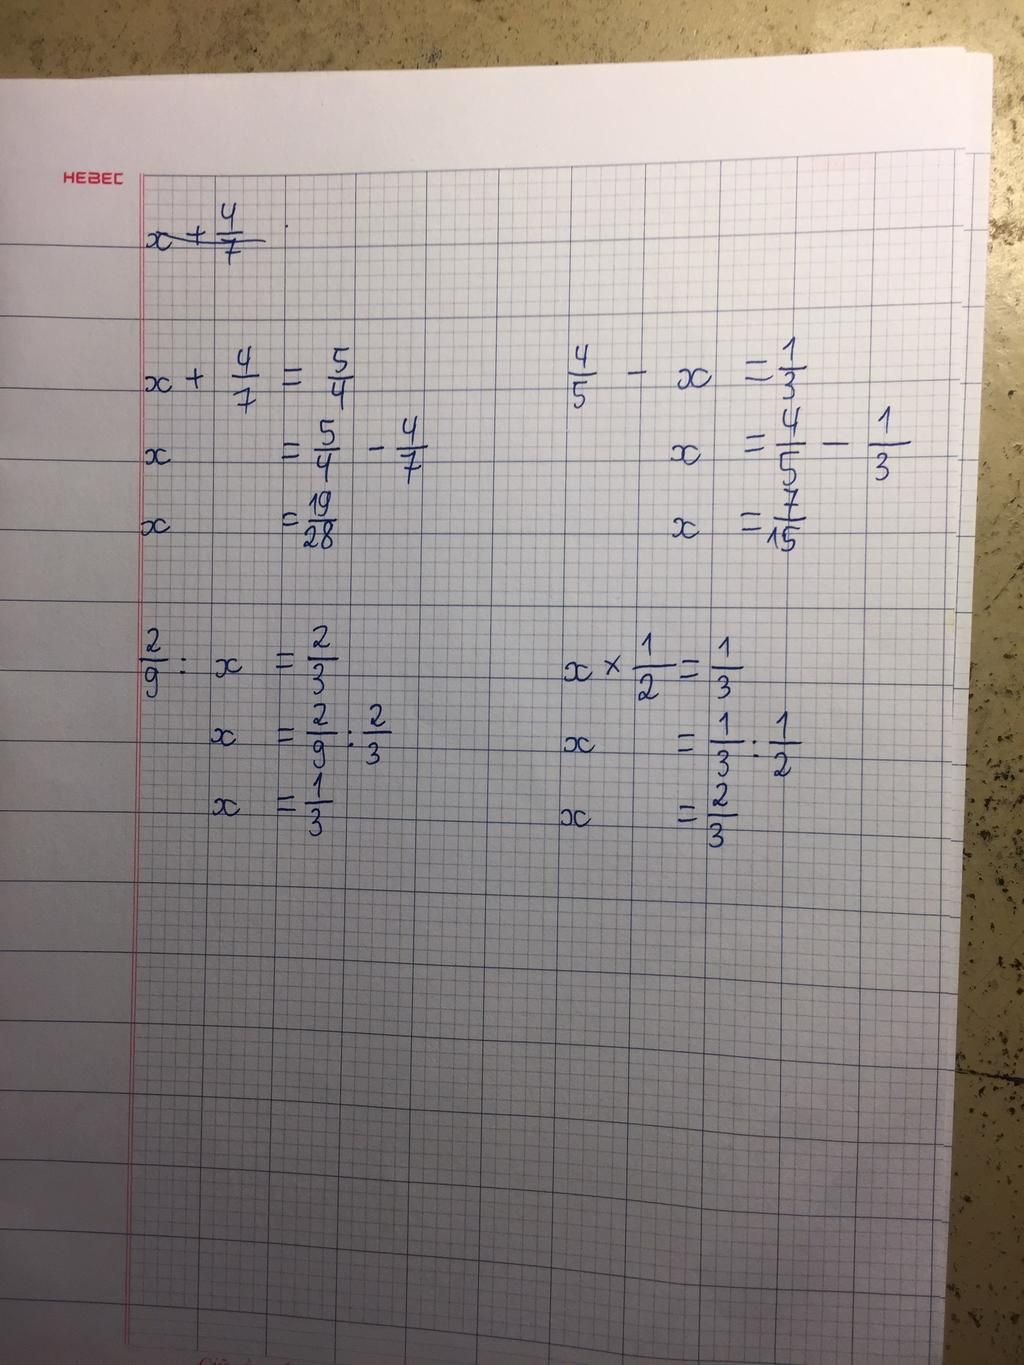 HEBEC
x + 4/7
x + 4/7 = 5/4
x = 5/4 - 4/7
x = 19/28
4/5 - x = 1/3
x = 4/5 - 1/3
x = 7/15
2/9 : x = 2/3
x = 2/9 : 2/3
x = 1/3
x × 1/2 = 1/3
x = 1/3 : 1/2
x = 2/3